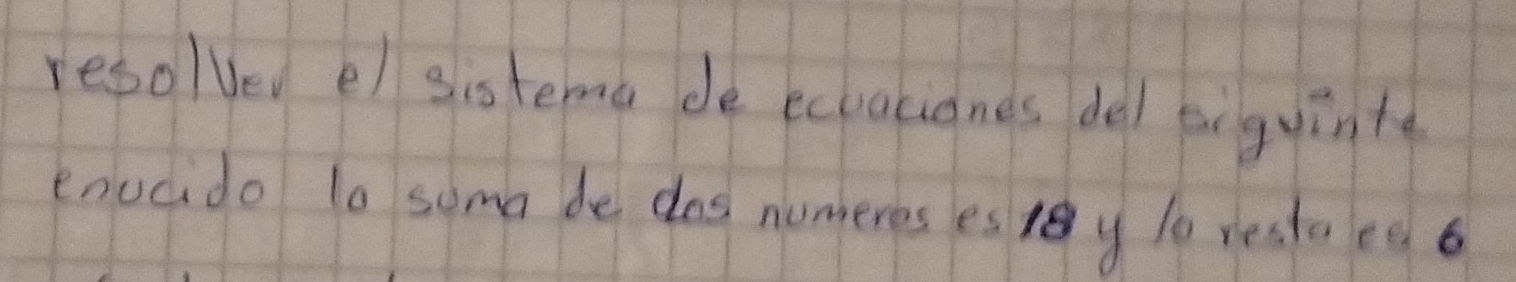 resolver el sistema de ecuaciones del siguinte
enucido la suma de dos numeros es 18 y la resta es 6